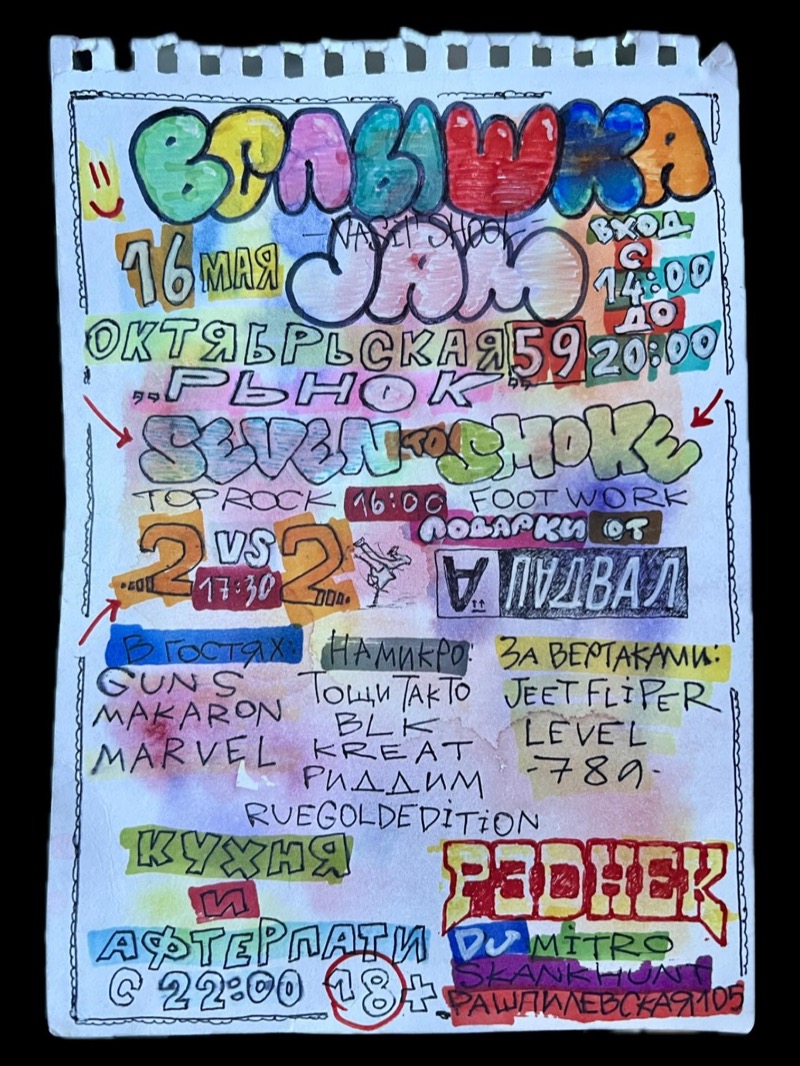 ВСПЫШКА
JAM
16 МАЯ
ВХОД
С
14:00
ДО
20:00
ОКТЯБРЬСКАЯ 59
„РЫНОК”
SEVEN TO SMOKE
TOPROCK 16:00 FOOTWORK
...2 VS 2...
17:30
ПОДАРКИ ОТ
ПАДВАЛ
В ГОСТЯХ:
GUNS
MAKARON
MARVEL
НА МИКРО:
ТОЩИ ТАКТО
BLK
KREAT
РИДДИМ
RUEGOLDEDITION
ЗА ВЕРТАКАМИ:
JEET FLIPER
LEVEL
-789-
КУХНЯ
И
АФТЕРПАТИ
С 22:00 18+
РЭДНЕК
DJ MITRO
SKANKHUNT
РАШПИЛЕВСКАЯ 105